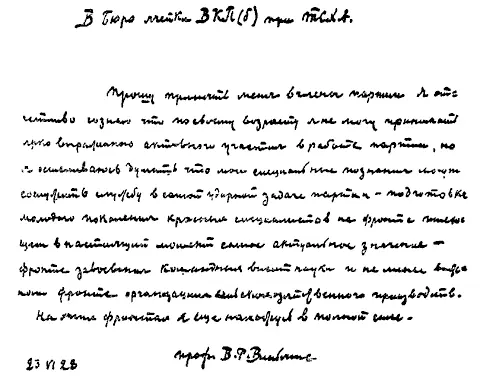 В Бюро ячейки ВКП(б) при ТСХА.
Прошу принять меня в члены партии. Я от-
четливо сознаю что по своему возрасту я не могу принимать
ярко выраженного активного участия в работе партии, но
я осмеливаюсь думать что мои специальные познания могут
сослужить службу в самой ударной задаче партии – подготовке
молодого поколения красных специалистов на фронте имею-
щем в настоящий момент самое актуальное значение –
фронте завоевания командных высот науки и на не менее
фронте организации сельскохозяйственного производства.
На этих фронтах я еще нахожусь в полной силе.
проф. В.Р. Вильямс
23 VI 28